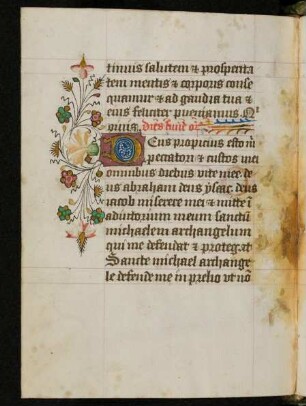 timus salutem & prosperita
tem mentis & corporis conse
quamur & ad gaudia tua &
eius feliciter
Deus propicius esto m̄
peccatori & custos mei
omnibus diebus vite mee de
us abraham deus ysaac deus
iacob miserere mei & mitte ī
adiutorium meum sanctū
michaelem archangelum
qui me defendat & protegat
Sancte michael archange
le defende me in prelio vt nō